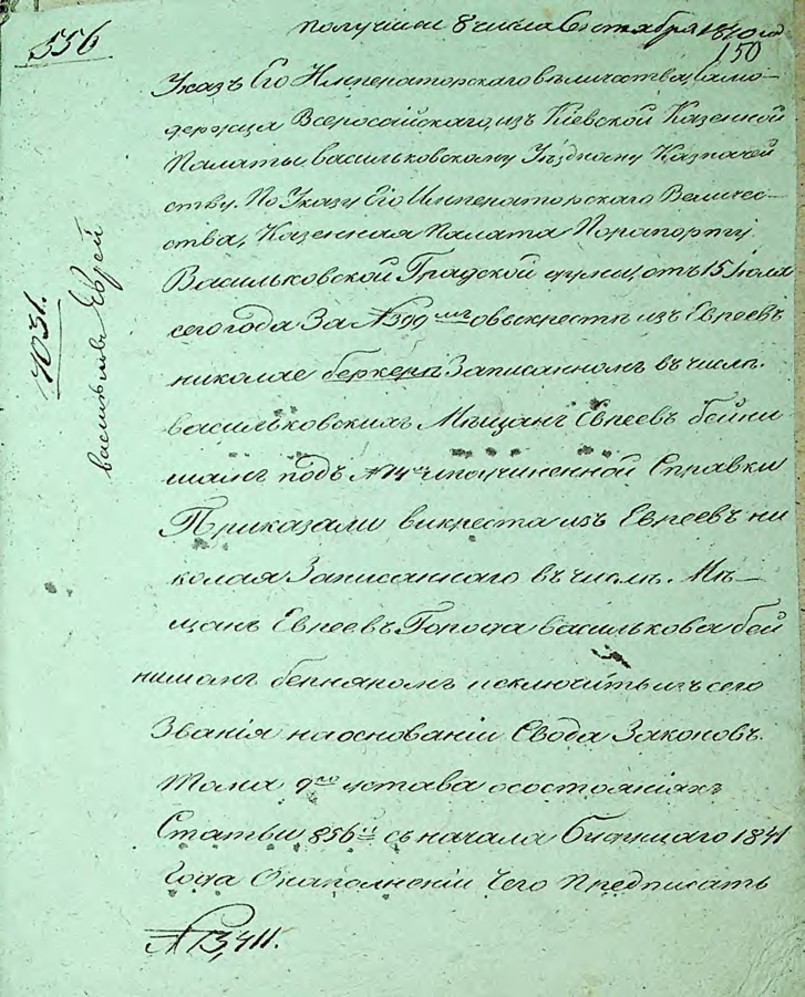 получен 8 числа Сентября 1840 год
556
150
Указъ Его Императорскаго величества, Само-
держца Всеросийскаго, изъ Кіевской Казенной
Палаты васильковскому Уѣздному Казначей
ству. По Указу Его Императорскаго Величес-
тва, Казенная Палата По рапорту
Васильковской Градской думы, отъ 15 Іюля
сего года За №399 овыкрестѣ изъ Евреевъ
николае Записанномъ въ числѣ
васильковскихъ Мѣщанъ Евреевъ бейни
маномъ подъ №14 Справки
Приказали викреста изъ Евреевъ ни
колая Записаннаго въ числѣ. Мѣ-
щанъ Евреевъ Города василькова бей
ниманомъ исключить изъ сего
Званія на основаніи Свода Законовъ.
тома 9го устава осостояніяхъ
Статьи 856й съ начала Будущаго 1841
Года О чего Предписать
№13,411.
4031.
Еврей